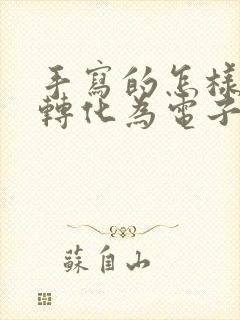 手寫的怎樣
轉化為電子
蘇自山